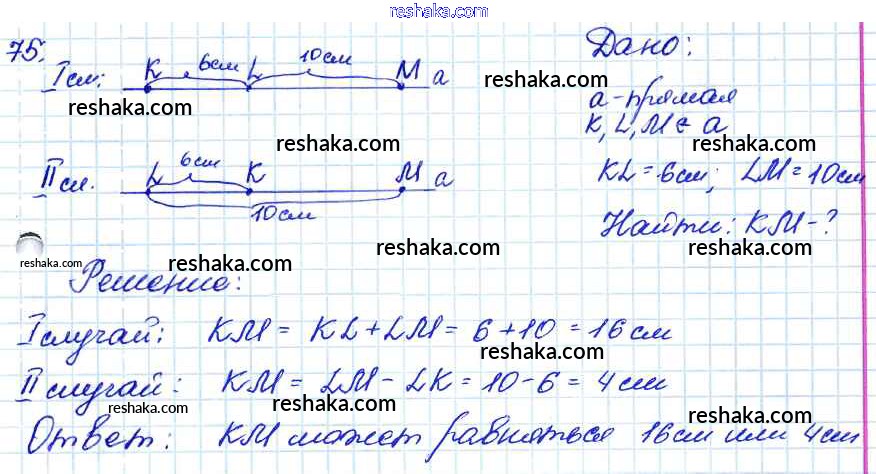 reshaka.com
75.
I сл.: K 6см L 10см M a
reshaka.com
reshaka.com
II сл. L 6см K M a
10см
Дано:
reshaka.com
a - прямая
K, L, M ∈ a
reshaka.com
KL = 6см; LM = 10см
Найти: KM - ?
reshaka.com
reshaka.com
reshaka.com
reshaka.com
Решение:
I случай: KM = KL + LM = 6 + 10 = 16 см
reshaka.com
II случай: KM = LM - LK = 10 - 6 = 4 см
reshaka.com
reshaka.com
reshaka.com
Ответ: KM может равняться 16см или 4см